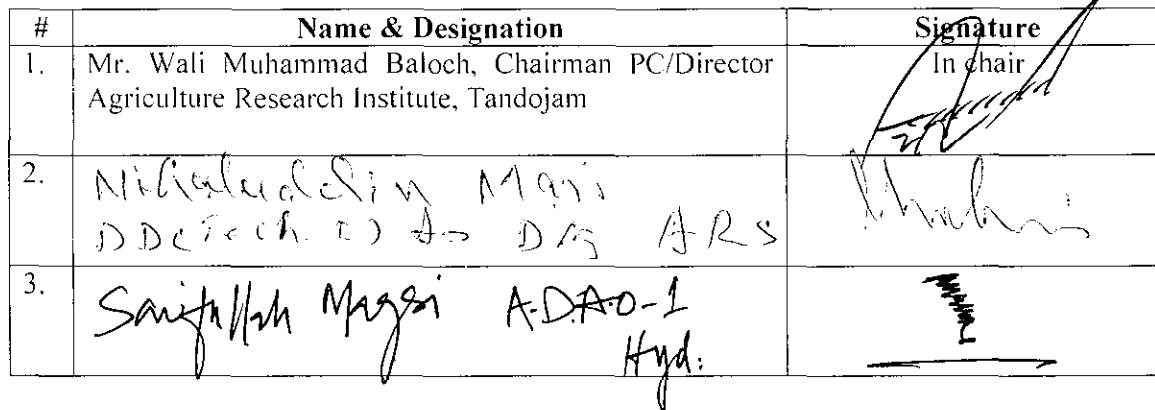 # Name & Designation Signature
1. Mr. Wali Muhammad Baloch, Chairman PC/Director In chair
Agriculture Research Institute, Tandojam
2. Nihaluddin Mari
DD(Tech. I) to DG ARS
3. Saifullah Magsi A.D.A.O-1
Hyd: